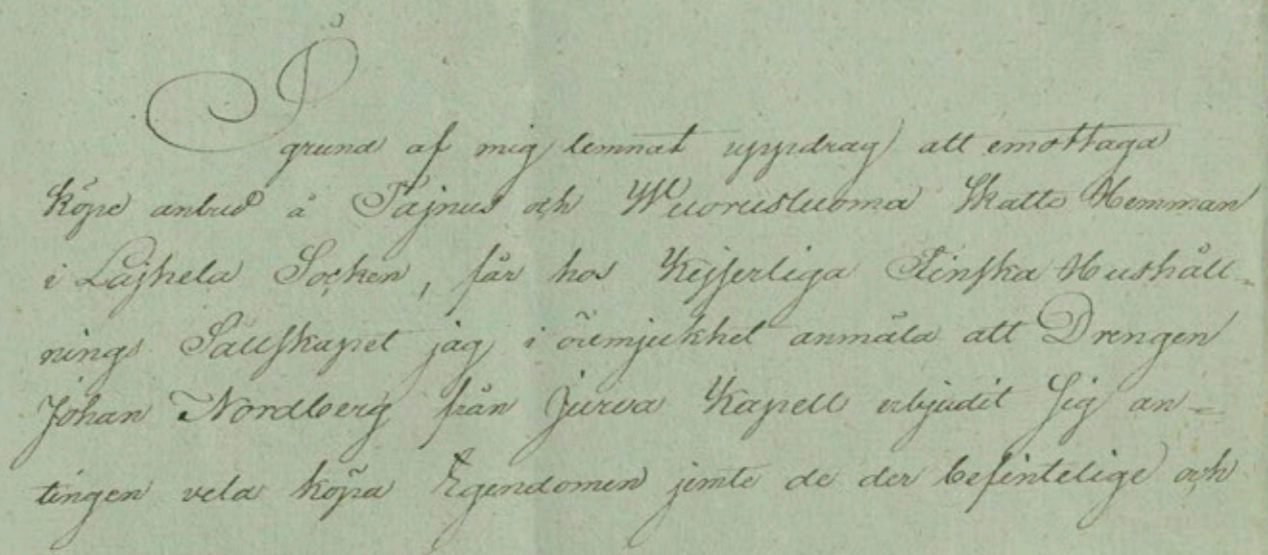 På
grund af mig lemnat uppdrag att emottaga
köpe anbud å Tajnus och Wuorusluoma Skatte Hemman
i Lajhela Socken, får hos Kejserliga Finska Hushåll-
nings Sällskapet jag i ödmjukhet anmäla att Drengen
Johan Nordberg från Jurva Kapell erbjudit sig an-
tingen vela köpa Egendomen jemte de der befintelige och